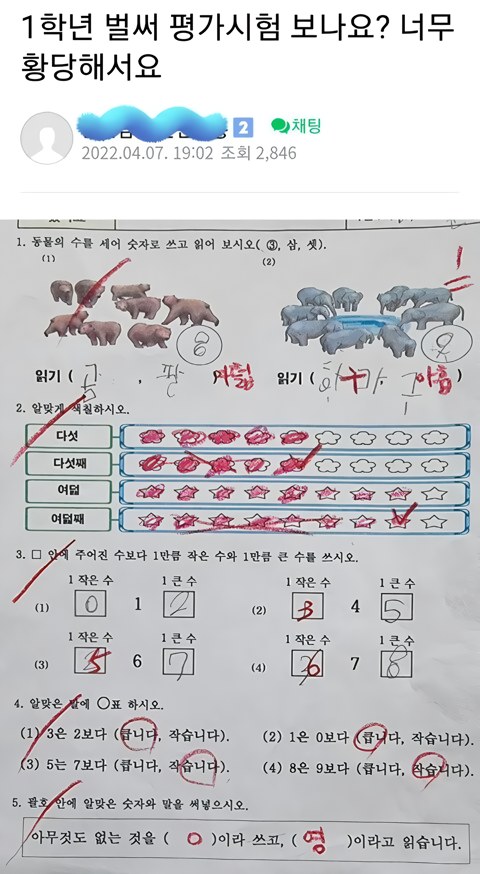 1학년 벌써 평가시험 보나요? 너무
황당해서요
2 채팅
2022.04.07. 19:02 조회 2,846
1. 동물의 수를 세어 숫자로 쓰고 읽어 보시오( ③, 삼, 셋).
(1) (2)
8 9
읽기 ( , 팔 여덟 ) 읽기 ( 아홉 )
2. 알맞게 색칠하시오.
다섯
다섯째
여덟
여덟째
3. □ 안에 주어진 수보다 1만큼 작은 수와 1만큼 큰 수를 쓰시오.
1 작은 수 1 큰 수 1 작은 수 1 큰 수
(1) 0 1 2 (2) 3 4 5
1 작은 수 1 큰 수 1 작은 수 1 큰 수
(3) 5 6 7 (4) 6 7 8
4. 알맞은 말에 ○표 하시오.
(1) 3은 2보다 (큽니다, 작습니다). (2) 1은 0보다 (큽니다, 작습니다).
(3) 5는 7보다 (큽니다, 작습니다). (4) 8은 9보다 (큽니다, 작습니다).
5. 괄호 안에 알맞은 숫자와 말을 써넣으시오.
아무것도 없는 것을 ( 0 )이라 쓰고, ( 영 )이라고 읽습니다.